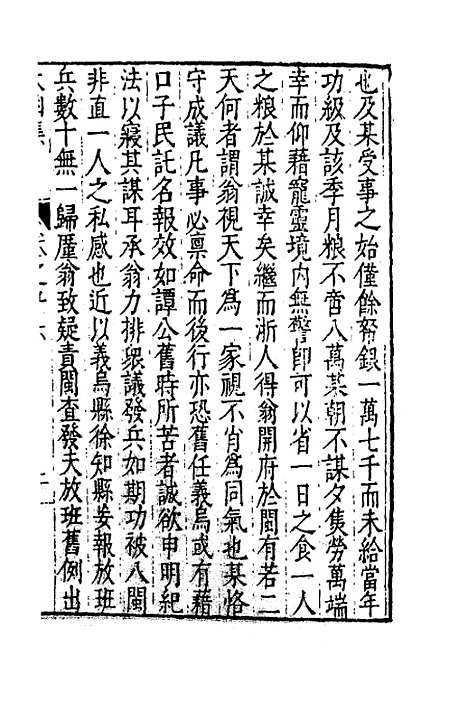 也及某受事之始僅餘帑銀一萬七千而未給當年
功級及該季月粮不啻八萬某朝不謀夕隻勞萬端
幸而仰藉寵靈境内無警即可以省一日之食一人
之粮於某誠幸矣繼而浙人得翁開府於閩有若二
天何者謂翁視天下為一家視不肖為同氣也某恪
守成議凡事必禀命而後行亦恐舊任義烏或有藉
口子民託名報效如譚公舊時所苦者誠欲申明紀
法以寢其謀耳承翁力排衆議發兵如期功被八閩
非直一人之私感也近以義烏縣徐知縣妄報放班
兵數十無一歸厪翁致疑責閩査發夫放班舊例出